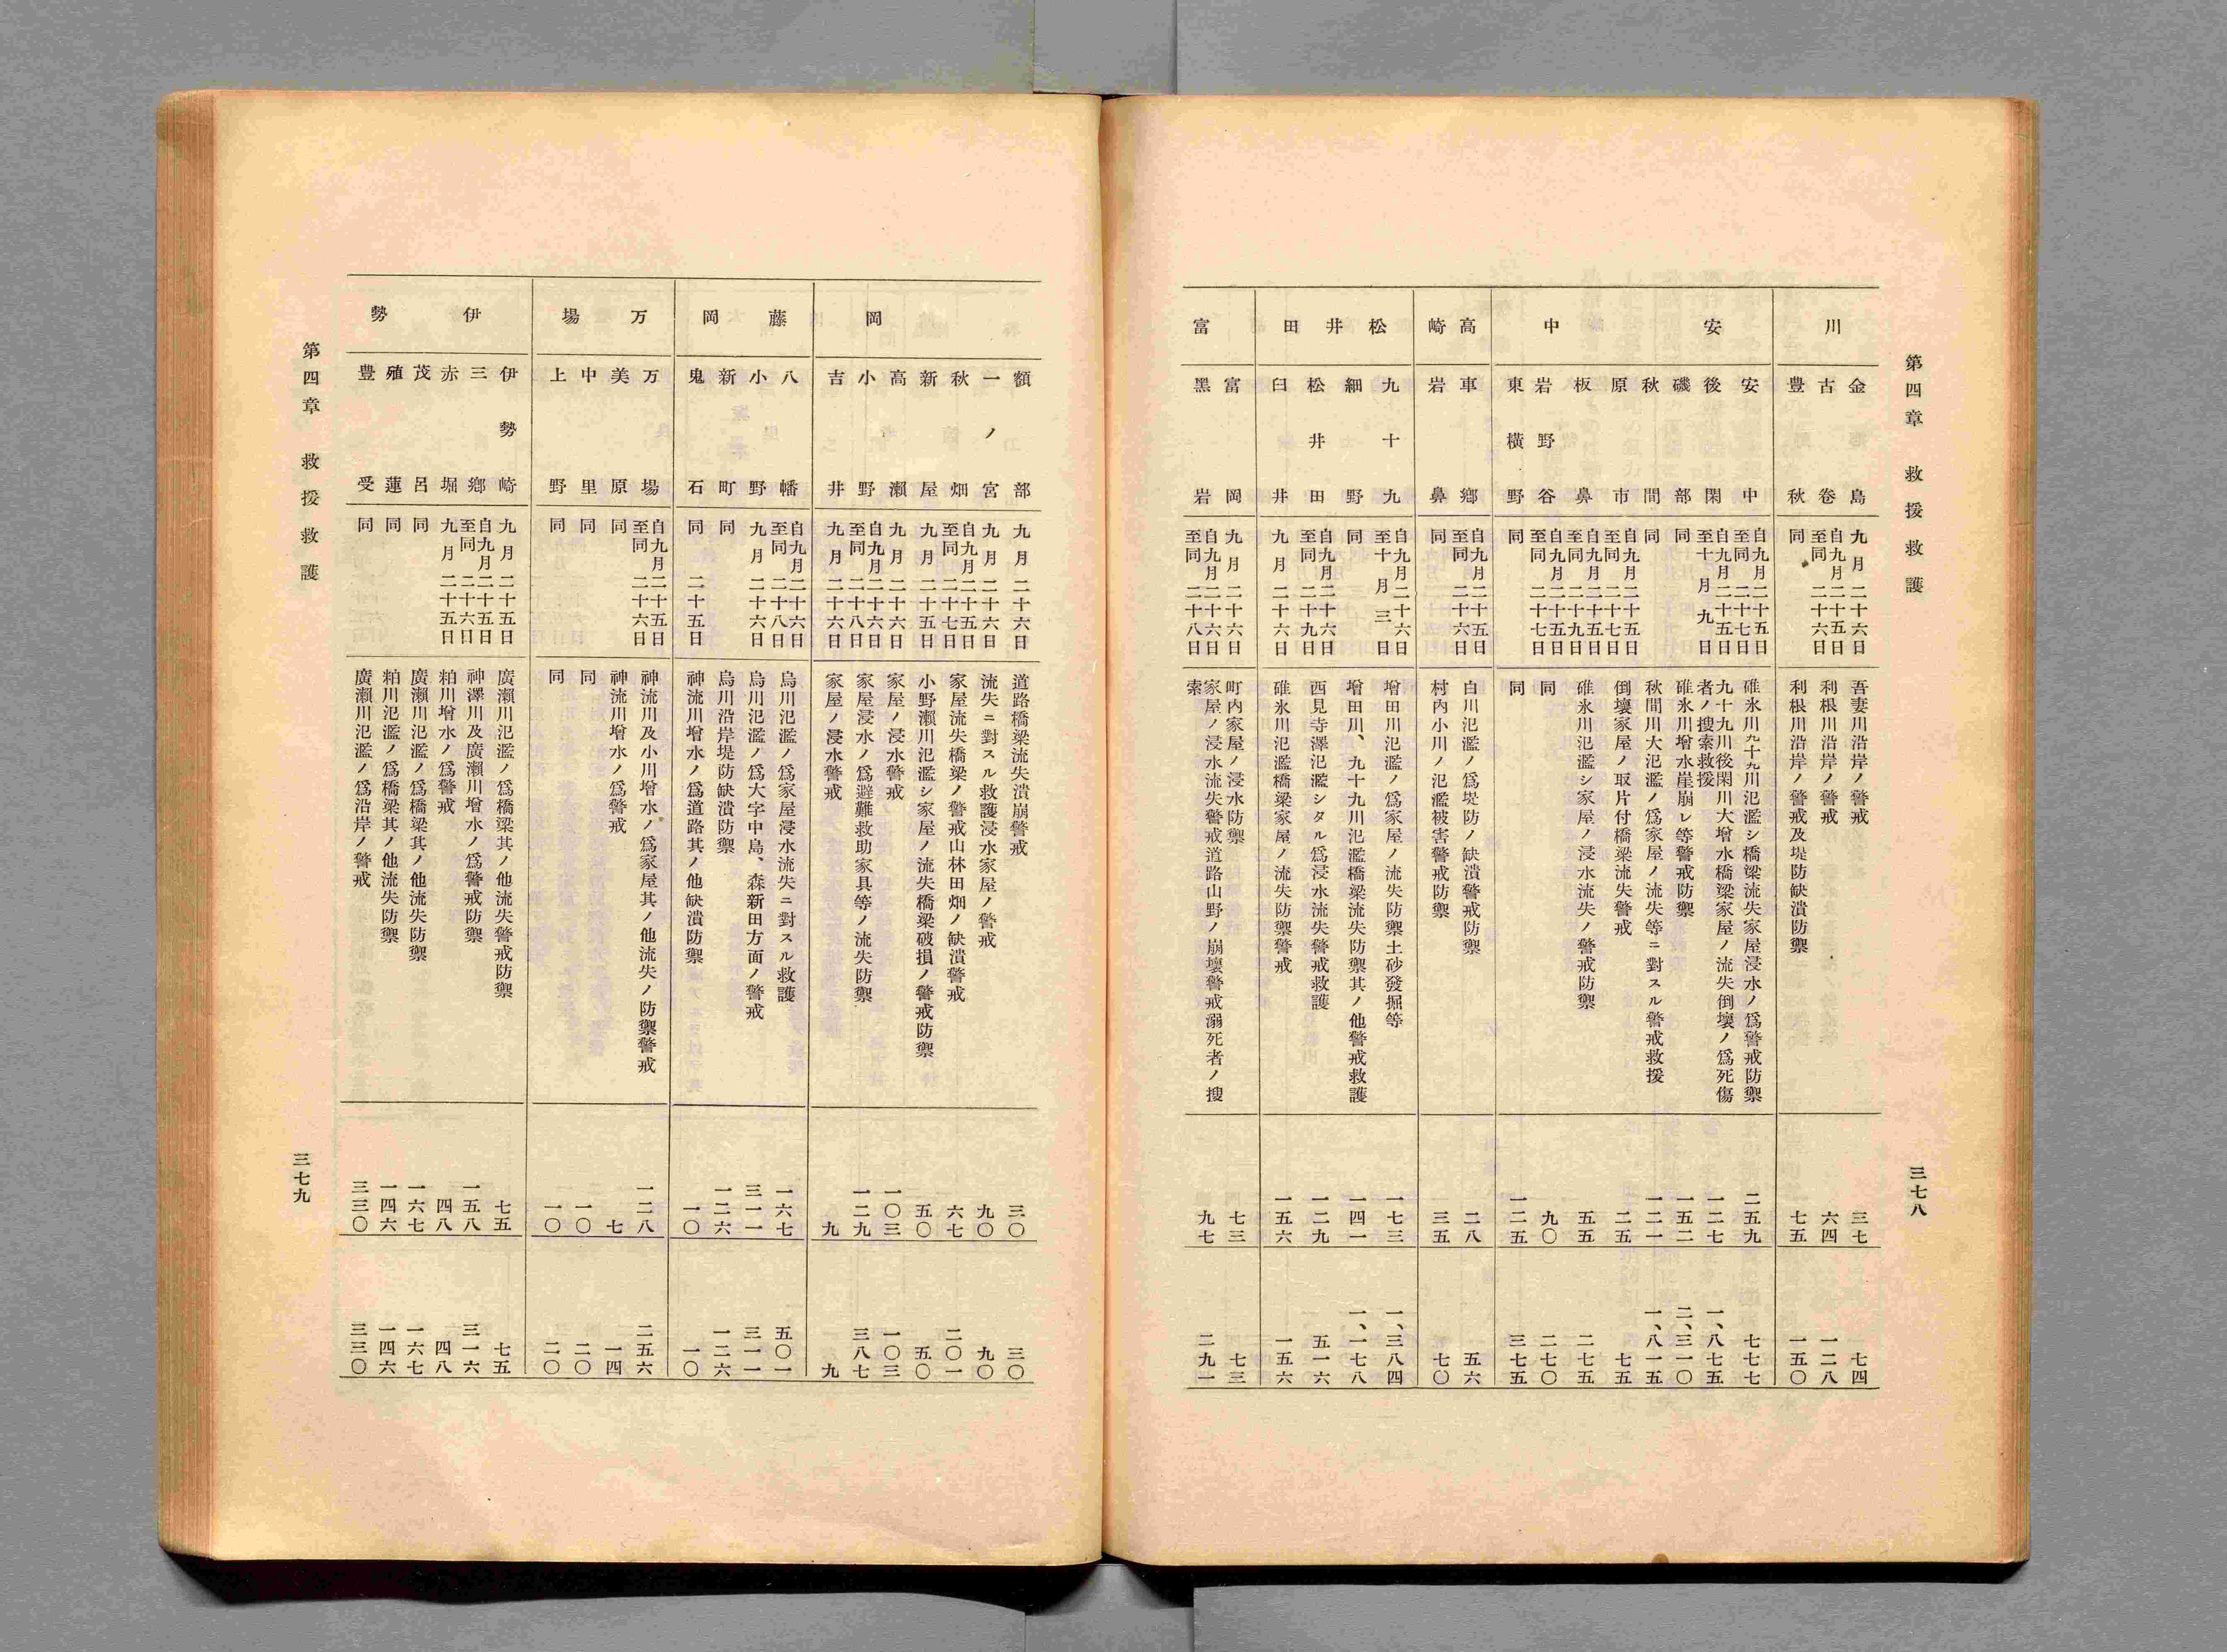 第四章 救援救護 三七八
川
金島 九月二十六日 吾妻川沿岸ノ警戒 三七 七四
古卷 自九月二十五日 至同二十六日 利根川沿岸ノ警戒 六四 一二八
豊秋 同 利根川沿岸ノ警戒及堤防缺潰防禦 七五 一五〇
安中
安中 自九月二十五日 至同二十七日 碓氷川九十九川氾濫シ橋梁流失家屋浸水ノ爲警戒防禦 二五九 七七七
後閑 自九月二十五日 至十月九日 九十九川後閑川大增水橋梁家屋ノ流失倒壞ノ爲死傷
者ノ搜索救援 一二七 一、八七五
磯部 同 碓氷川增水崖崩レ等警戒防禦 一五二 二、三一〇
秋間 同 秋間川大氾濫ノ爲家屋ノ流失等ニ對スル警戒救援 一二一 一、八一五
原市 自九月二十五日 至同二十七日 倒壞家屋ノ取片付橋梁流失警戒 二五 七五
板鼻 自九月二十五日 至同二十九日 碓氷川氾濫シ家屋ノ浸水流失ノ警戒防禦 五五 二七五
岩野谷 自九月二十五日 至同二十七日 同 九〇 二七〇
東橫野 同 同 一二五 三七五
高崎
車鄕 自九月二十五日 至同二十六日 白川氾濫ノ爲堤防ノ缺潰警戒防禦 二八 五六
岩鼻 同 村內小川ノ氾濫被害警戒防禦 三五 七〇
松井田
九十九 自九月二十六日 至十月三日 增田川氾濫ノ爲家屋ノ流失防禦土砂發掘等 一七三 一、三八四
細野 同 增田川、九十九川氾濫橋梁流失防禦其ノ他警戒救護 一四一 一、一七八
松井田 自九月二十六日 至同二十九日 西見寺澤氾濫シタル爲浸水流失警戒救護 一二九 五一六
臼井 九月二十六日 碓氷川氾濫橋梁家屋ノ流失防禦警戒 一五六 一五六
富
富岡 九月二十六日 町內家屋ノ浸水防禦 七三 七三
黑岩 自九月二十六日 至同二十八日 家屋ノ浸水流失警戒道路山野ノ崩壞警戒溺死者ノ搜
索 九七 二九一
岡
額部 九月二十六日 道路橋梁流失潰崩警戒 三〇 三〇
一ノ宮 九月二十六日 流失ニ對スル救護浸水家屋ノ警戒 九〇 九〇
秋畑 自九月二十五日 至同二十七日 家屋流失橋梁ノ警戒山林田畑ノ缺潰警戒 六七 二〇一
新屋 九月二十五日 小野瀨川氾濫シ家屋ノ流失橋梁破損ノ警戒防禦 五〇 五〇
高瀨 九月二十六日 家屋ノ浸水警戒 一〇三 一〇三
小野 自九月二十六日 至同二十八日 家屋浸水ノ爲避難救助家具等ノ流失防禦 一二九 三八七
吉井 九月二十六日 家屋ノ浸水警戒 九 九
藤岡
八幡 自九月二十六日 至同二十八日 烏川氾濫ノ爲家屋浸水流失ニ對スル救護 一六七 五〇一
小野 九月二十六日 烏川氾濫ノ爲大字中島、森新田方面ノ警戒 三一一 三一一
新町 同 烏川沿岸堤防缺潰防禦 一二六 一二六
鬼石 同二十五日 神流川增水ノ爲道路其ノ他缺潰防禦 一〇 一〇
万場
万場 自九月二十五日 至同二十六日 神流川及小川增水ノ爲家屋其ノ他流失ノ防禦警戒 一二八 二五六
美原 同 神流川增水ノ爲警戒 七 一四
中里 同 同 一〇 二〇
上野 同 同 一〇 二〇
伊勢
伊勢崎 九月二十五日 廣瀨川氾濫ノ爲橋梁其ノ他流失警戒防禦 七五 七五
三鄕 自九月二十五日 至同二十六日 神澤川及廣瀨川增水ノ爲警戒防禦 一五八 三一六
赤堀 九月二十五日 粕川增水ノ爲警戒 四八 四八
茂呂 同 廣瀨川氾濫ノ爲橋梁其ノ他流失防禦 一六七 一六七
殖蓮 同 粕川氾濫ノ爲橋梁其ノ他流失防禦 一四六 一四六
豊受 同 廣瀨川氾濫ノ爲沿岸ノ警戒 三三〇 三三〇
第四章 救援救護 三七九